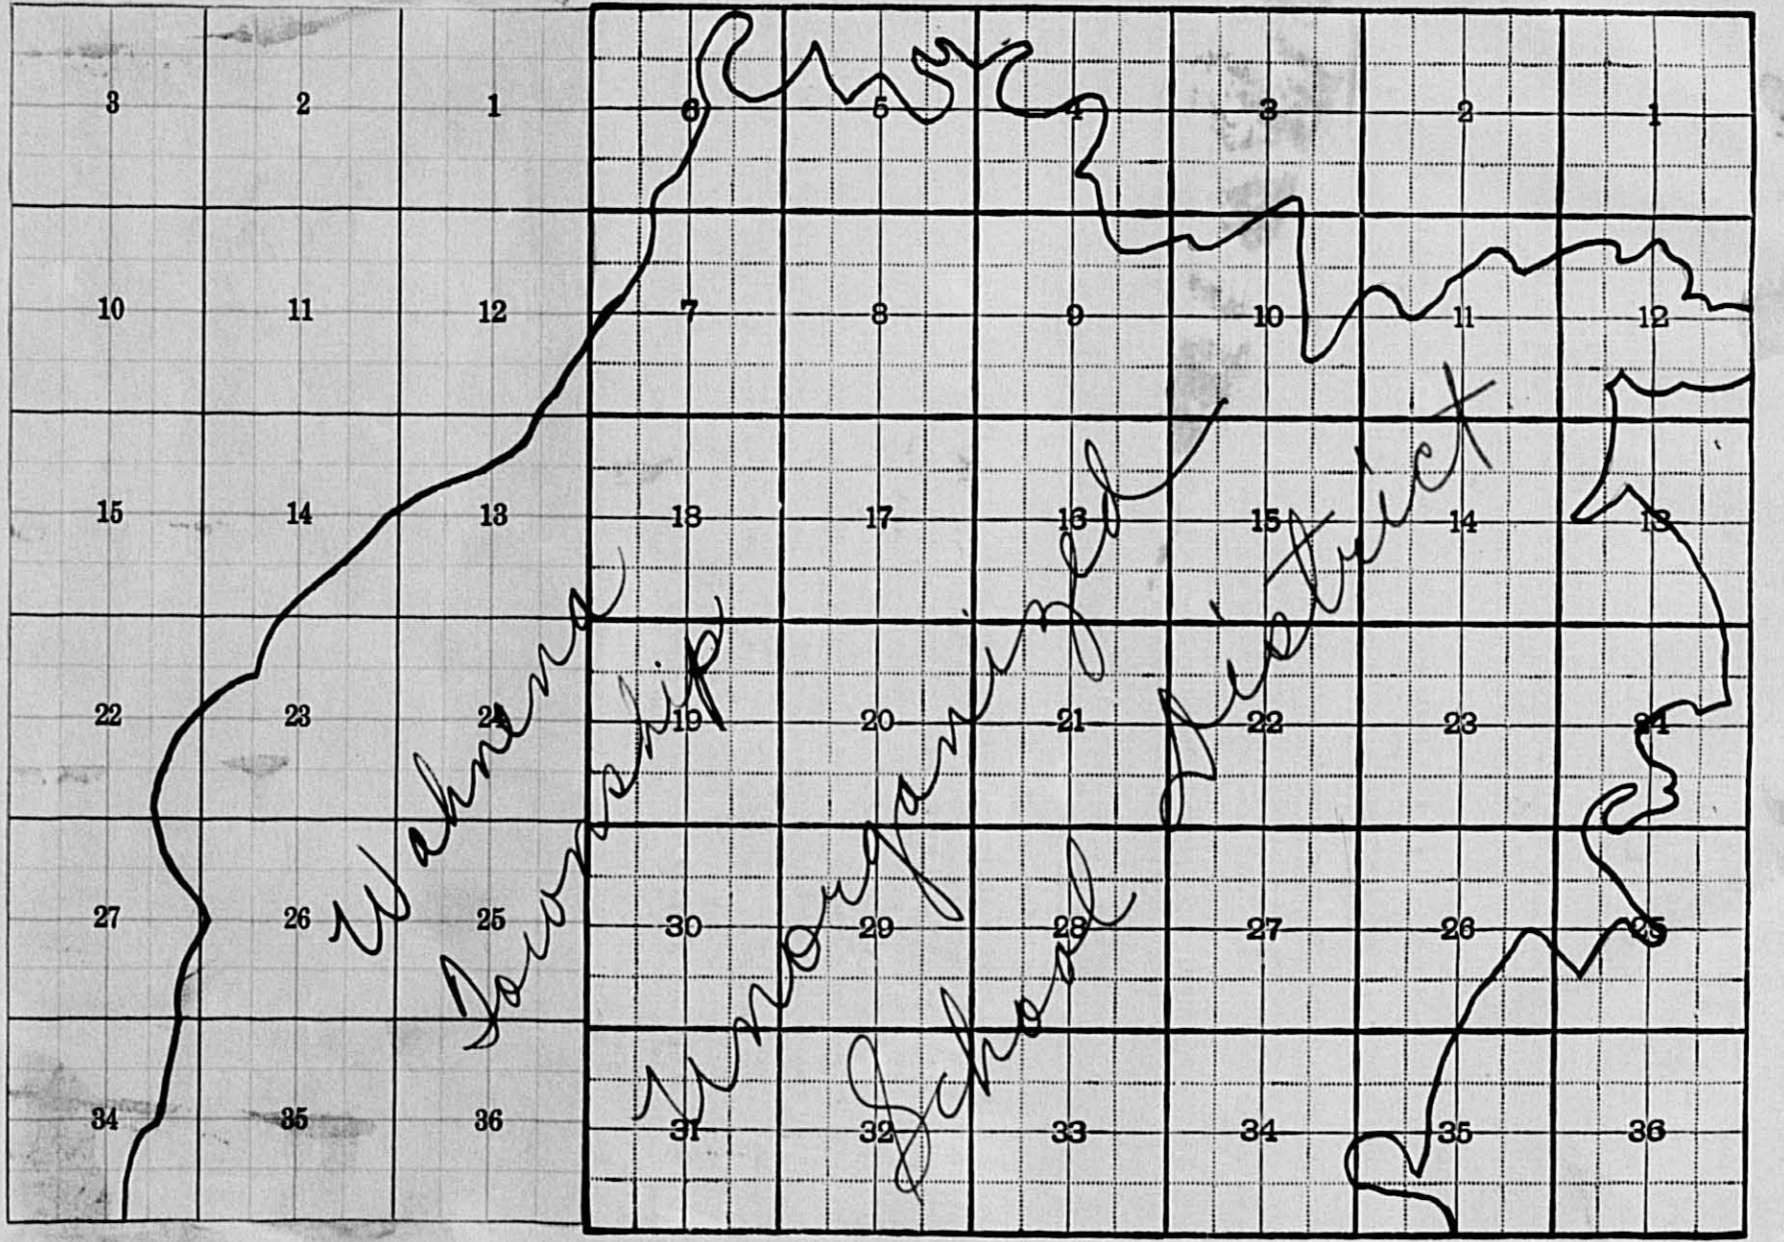 3 2 1 6 5 4 3 2 1
10 11 12 7 8 9 10 11 12
15 14 13 18 17 16 15 14 13
22 23 24 19 20 21 22 23 24
27 26 25 30 29 28 27 26 25
34 35 36 31 32 33 34 35 36
Wahnena
Township
Unorganized
School District